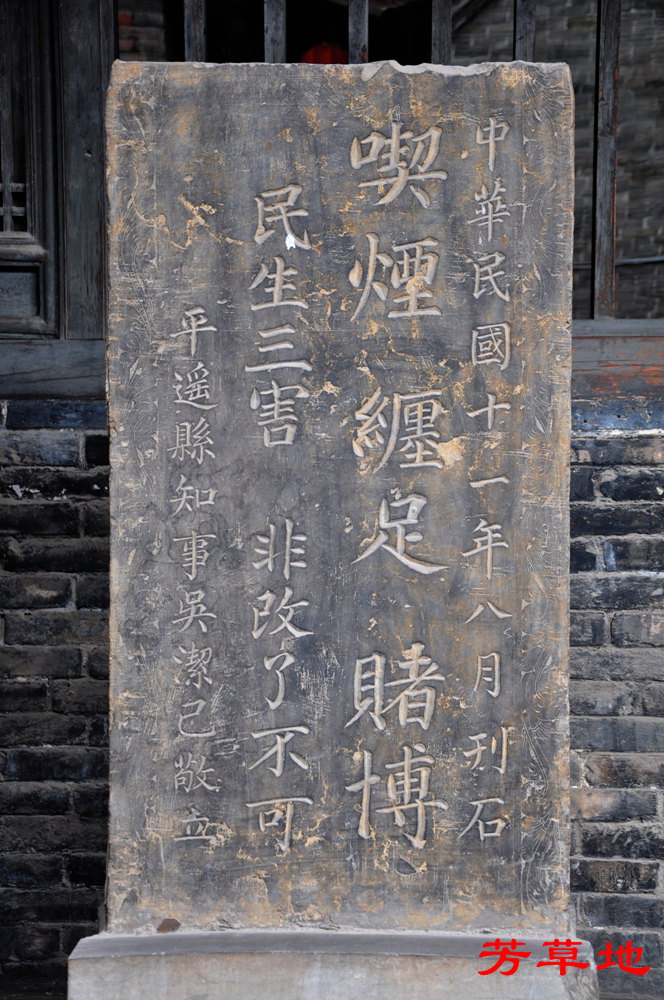 中華民國十一年八月刊石
喫煙纏足賭博
民生三害非改了不可
平遥縣知事吳潔己敬立
芳草地